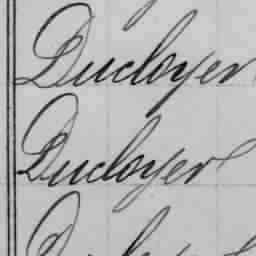 Ducloyer
Ducloyer